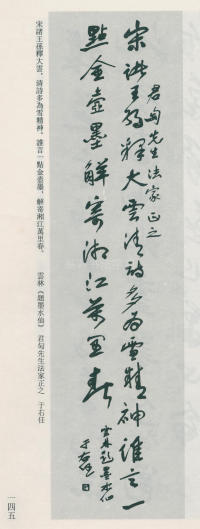 君匋先生法家正之
宋諸王孫釋大雲清詩多為雪精神誰言一
點金壺墨解寄湘江萬里春
雲林題墨水仙
于右任
宋諸王孫釋大雲，清詩多為雪精神。誰言一點金壺墨，解寄湘江萬里春。　雲林《題墨水仙》　君匋先生法家正之　于右任
一四五